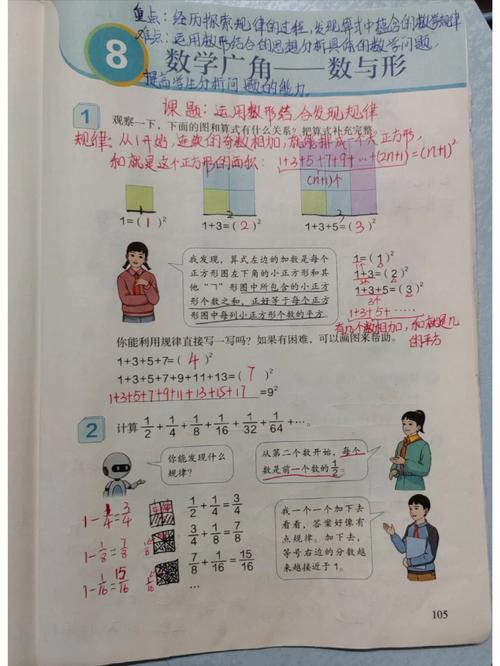 重点：经历探索规律的过程，发现算式中蕴含的数学规律
难点：运用数形结合的思想分析具体的数学问题，
提高学生分析问题的能力。
8 数学广角——数与形
课题：运用数形结合发现规律
1 观察一下，下面的图和算式有什么关系？把算式补充完整。
规律：从1开始，连续的奇数相加，就能排成一个大正方形，
和就是这个正方形的面积：1+3+5+7+9+…+(2n+1)=(n+1)²
(n+1)个
1 2 3
1=(1)² 1+3=(2)² 1+3+5=(3)²
我发现，算式左边的加数是每个
正方形图左下角的小正方形和其
他“ㄱ”形图中所包含的小正方
形个数之和，正好等于每个正方形
图中每列小正方形个数的平方。
1=(1)²
1个
1+3=(2)²
2个
1+3+5=(3)²
3个
1+3+5+……
有几个数相加，和就是几
的平方
你能利用规律直接写一写吗？如果有困难，可以画图来帮助。
1+3+5+7=(4)²
1+3+5+7+9+11+13=(7)²
1+3+5+7+9+11+13+15+17=9²
2 计算 1/2+1/4+1/8+1/16+1/32+1/64+…。
你能发现什么
规律？
从第二个数开始，每个
数是前一个数的1/2。
1-1/4=3/4 1/2+1/4=3/4
1-1/8=7/8 3/4+1/8=7/8
1-1/16=15/16 7/8+1/16=15/16
…
我一个一个加下去
看看，答案好像有
点规律。加下去，
等号右边的分数越
来越接近于1。
105